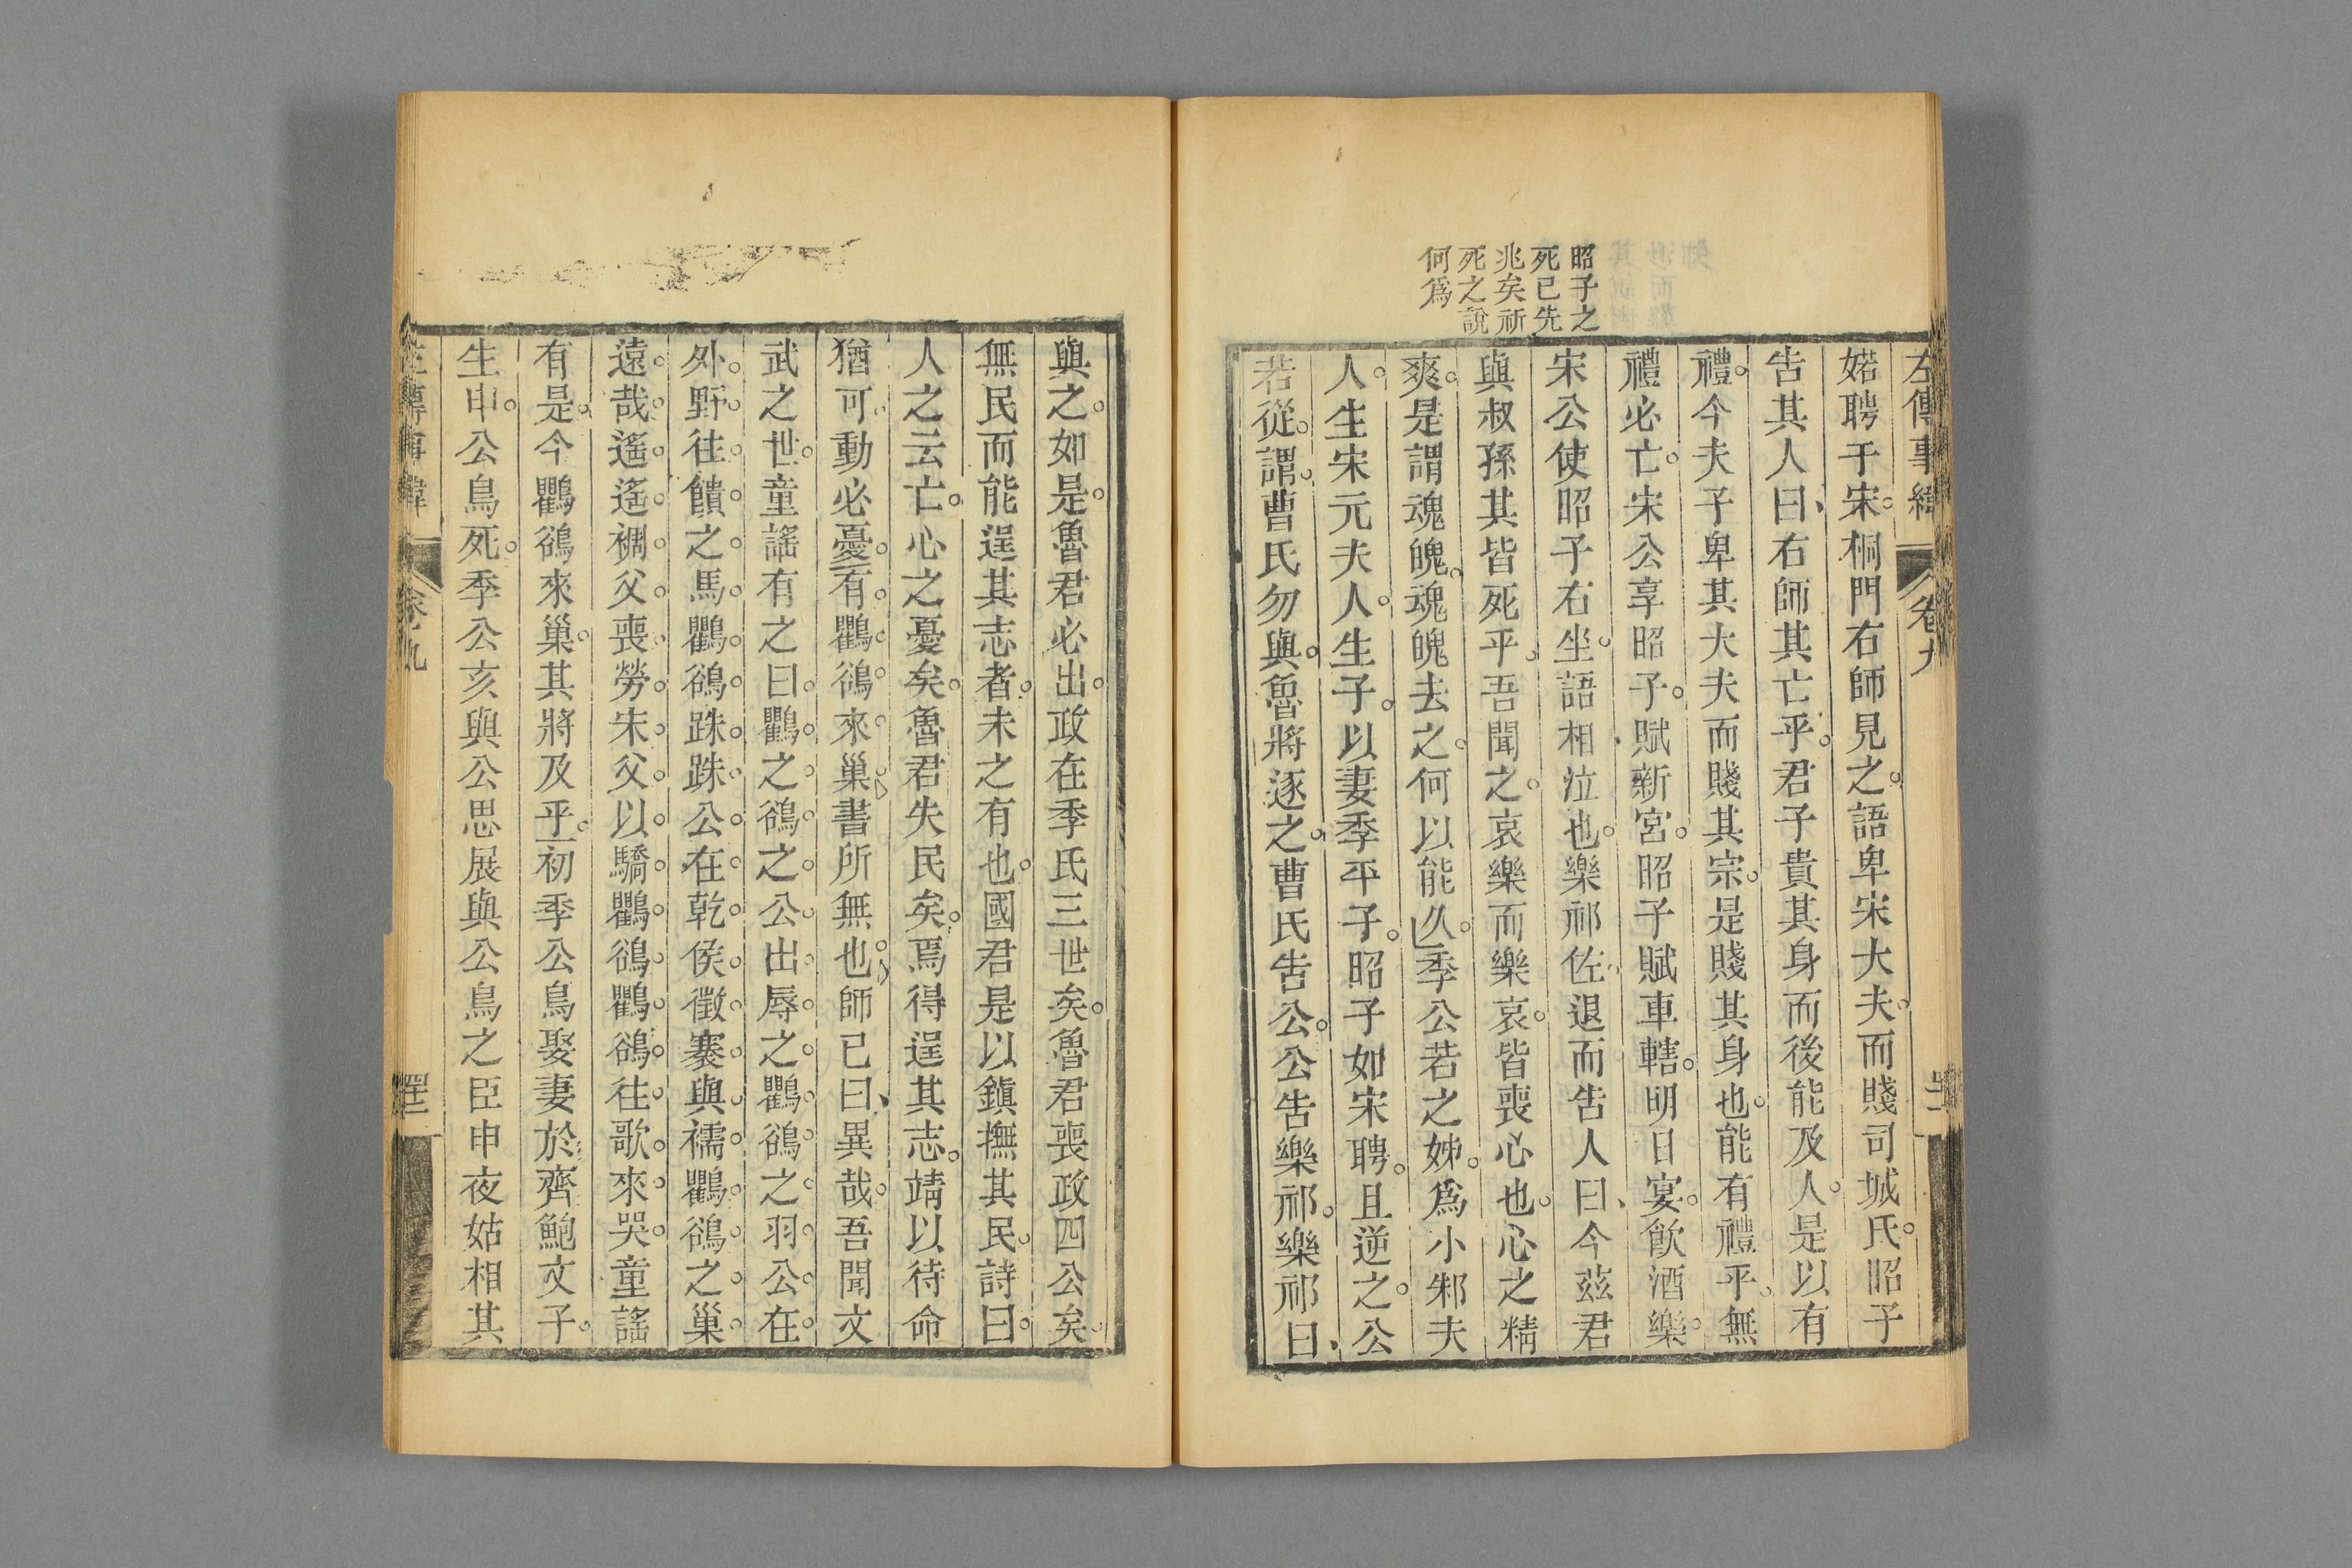 左傳事緯
卷九
昭子之
死已先
兆矣祈
死之說
何爲
婼聘于宋。桐門右師見之。語卑宋大夫。而賤司城氏。昭子
告其人曰、右師其亡乎。君子貴其身而後能及人。是以有
禮。今夫子卑其大夫而賤其宗。是賤其身也。能有禮乎。無
禮必亡。宋公享昭子。賦新宮。昭子賦車轄。明日宴。飮酒樂。
宋公使昭子右坐。語相泣也。樂祁佐。退而告人曰、今茲君
與叔孫其皆死乎。吾聞之。哀樂而樂哀。皆喪心也。心之精
爽。是謂魂魄。魂魄去之。何以能久。季公若之姊。爲小邾夫
人。生宋元夫人。生子。以妻季平子。昭子如宋聘。且逆之。公
若從。謂。曹氏勿與。魯將逐之。曹氏告公。公告樂祁。樂祁曰、
與之。如是。魯君必出。政在季氏三世矣。魯君喪政四公矣。
無民而能逞其志者。未之有也。國君是以鎭撫其民。詩曰。
人之云亡。心之憂矣。魯君失民矣。焉得逞其志。靖以待命
猶可。動必憂。有鸜鵒來巢。書所無也。師已曰、異哉。吾聞文
武之世。童謠有之曰。鸜之鵒之。公出辱之。鸜鵒之羽。公在
外。野。往饋之馬。鸜鵒跦跦。公在乾侯。徵褰與襦。鸜鵒之巢。
遠哉遙遙。裯父喪勞。宋父以驕。鸜鵒鸜鵒。往歌來哭。童謠
有是。今鸜鵒來巢。其將及乎。初季公鳥娶妻於齊鮑文子。
生申。公鳥死。季公亥與公思展與公鳥之臣申夜姑相其
左傳事緯
卷九